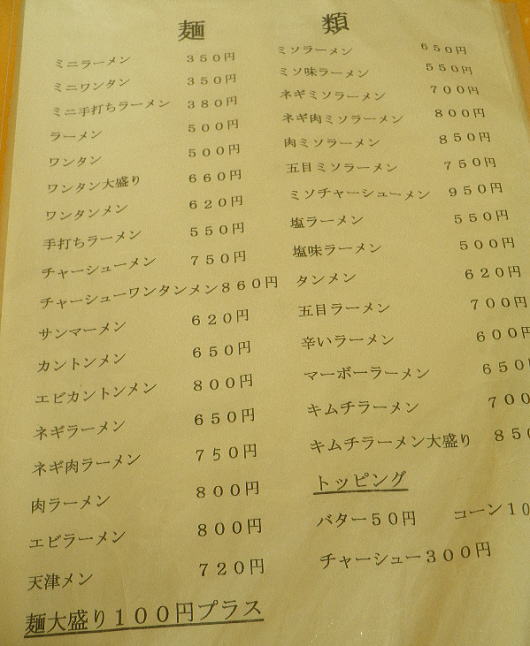 麺類
ミニラーメン ３５０円
ミニワンタン ３５０円
ミニ手打ちラーメン ３８０円
ラーメン ５００円
ワンタン ５００円
ワンタン大盛り ６６０円
ワンタンメン ６２０円
手打ちラーメン ５５０円
チャーシューメン ７５０円
チャーシューワンタンメン８６０円
サンマーメン ６２０円
カントンメン ６５０円
エビカントンメン ８００円
ネギラーメン ６５０円
ネギ肉ラーメン ７５０円
肉ラーメン ８００円
エビラーメン ８００円
天津メン ７２０円
麺大盛り１００円プラス
ミソラーメン ６５０円
ミソ味ラーメン ５５０円
ネギミソラーメン ７００円
ネギ肉ミソラーメン ８００円
肉ミソラーメン ８５０円
五目ミソラーメン ７５０円
ミソチャーシューメン ９５０円
塩ラーメン ５５０円
塩味ラーメン ５００円
タンメン ６２０円
五目ラーメン ７００円
辛いラーメン ６００円
マーボーラーメン ６５０
キムチラーメン ７００
キムチラーメン大盛り ８５０
トッピング
バター５０円 コーン１０
チャーシュー３００円